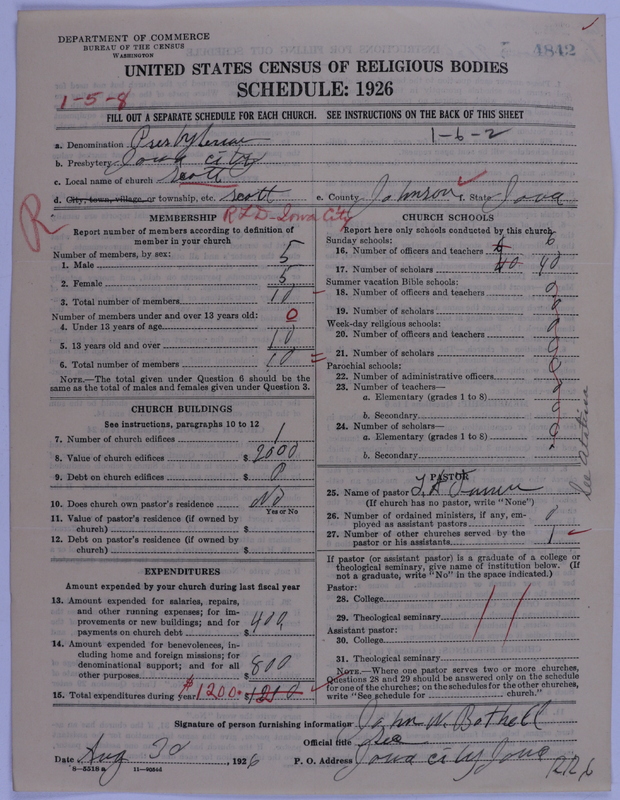 DEPARTMENT OF COMMERCE
BUREAU OF THE CENSUS
WASHINGTON
4842
UNITED STATES CENSUS OF RELIGIOUS BODIES
SCHEDULE: 1926
1-5-8
FILL OUT A SEPARATE SCHEDULE FOR EACH CHURCH. SEE INSTRUCTIONS ON THE BACK OF THIS SHEET
1-6-2
a. Denomination Presbyterian
b. Presbytery Iowa City
c. Local name of church Scott
d. City, town, village, or township, etc. Scott e. County Johnson f. State Iowa
R
RFD-Iowa City
MEMBERSHIP
Report number of members according to definition of
member in your church
Number of members, by sex:
1. Male 5
2. Female 5
3. Total number of members 10
Number of members under and over 13 years old:
4. Under 13 years of age 0
5. 13 years old and over 10
6. Total number of members 10
NOTE.—The total given under Question 6 should be
the same as the total of males and females given under Question 3.
CHURCH BUILDINGS
See instructions, paragraphs 10 to 12
7. Number of church edifices 1
8. Value of church edifices $ 2000
9. Debt on church edifices $ 0
10. Does church own pastor's residence No
Yes or No
11. Value of pastor's residence (if owned by
church) $
12. Debt on pastor's residence (if owned by
church) $
EXPENDITURES
Amount expended by your church during last fiscal year
13. Amount expended for salaries, repairs,
and other running expenses; for im-
provements or new buildings; and for
payments on church debt $ 400
14. Amount expended for benevolences, in-
cluding home and foreign missions; for
denominational support; and for all
other purposes $ 800
15. Total expenditures during year $1200. $1210
CHURCH SCHOOLS
Report here only schools conducted by this church
Sunday schools:
16. Number of officers and teachers 6 6
17. Number of scholars 40 40
Summer vacation Bible schools:
18. Number of officers and teachers 0
19. Number of scholars 0
Week-day religious schools:
20. Number of officers and teachers 0
21. Number of scholars 0
Parochial schools:
22. Number of administrative officers 0
23. Number of teachers—
a. Elementary (grades 1 to 8) 0
b. Secondary 0
24. Number of scholars—
a. Elementary (grades 1 to 8) 0
b. Secondary
See
PASTOR
25. Name of pastor
(If church has no pastor, write "None")
26. Number of ordained ministers, if any, em-
ployed as assistant pastors 0
27. Number of other churches served by the
pastor or his assistants 1
If pastor (or assistant pastor) is a graduate of a college or
theological seminary, give name of institution below. (If
not a graduate, write "No" in the space indicated.)
Pastor:
28. College
29. Theological seminary
Assistant pastor:
30. College
31. Theological seminary
NOTE.—Where one pastor serves two or more churches,
Questions 28 and 29 should be answered only on the schedule
for one of the churches; on the schedules for the other churches,
write "See schedule for church."
Signature of person furnishing information John W. Bothell
Official title Sec
Date Aug 30, 1926 P. O. Address Iowa City Iowa
RR 6
8-5518a 11-90544